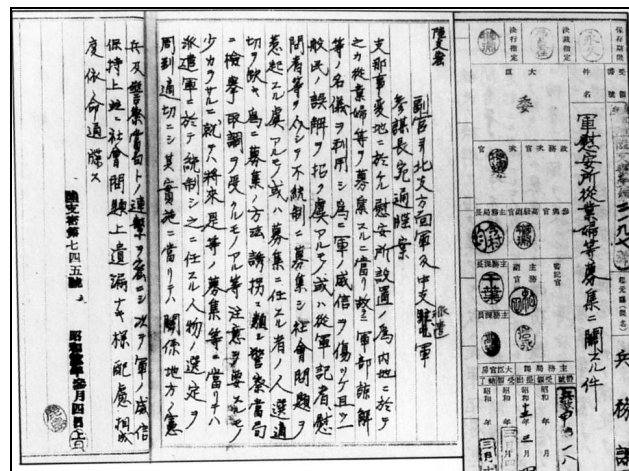 兵務課
保存期限
決裁指定
決行指定
件名
軍慰安所從業婦等募集ニ關スル件
大臣
委
次官
政務次官
參與官
高級副官
主務局長
主務課長
主務副官
書記官
主務課員
千葉
大臣官房
主務局課
昭和 年 月
陸支密
副官ヨリ北支方面軍及中支派遣軍
參謀長宛通牒案
支那事變地ニ於ケル慰安所設置ノ爲内地ニ於テ
之カ從業婦等ヲ募集スルニ當リ故ラニ軍部諒解
等ノ名儀ヲ利用シ爲ニ軍ノ威信ヲ傷ツケ且ツ一
般民ノ誤解ヲ招ク虞アルモノ或ハ從軍記者慰
問者等ヲ介シテ不統制ニ募集シ社會問題ヲ
惹起スル虞アルモノ或ハ募集ニ任スル者ノ人選適
切ヲ缺キ爲ニ募集ノ方法誘拐ニ類シ警察當局
ニ檢擧取調ヲ受クルモノアル等注意ヲ要スルモノ
少カラサルニ就テハ將來是等ノ募集等ニ當リテハ
派遣軍ニ於テ統制シ之ニ任スル人物ノ選定ヲ
周到適切ニシ其實施ニ當リテハ關係地方ノ憲
兵及警察當局トノ連繫ヲ密ニシ以テ軍ノ威信
保持上竝ニ社會問題上遺漏ナキ樣配慮相成
度依命通牒ス
陸支密第七四五號 昭和拾參年參月四日